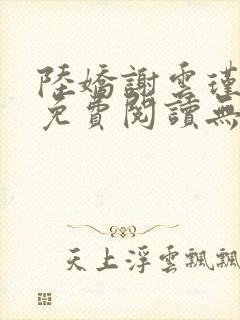 陸嬌謝雲瑾
免費閱讀無
天上浮雲飄飄